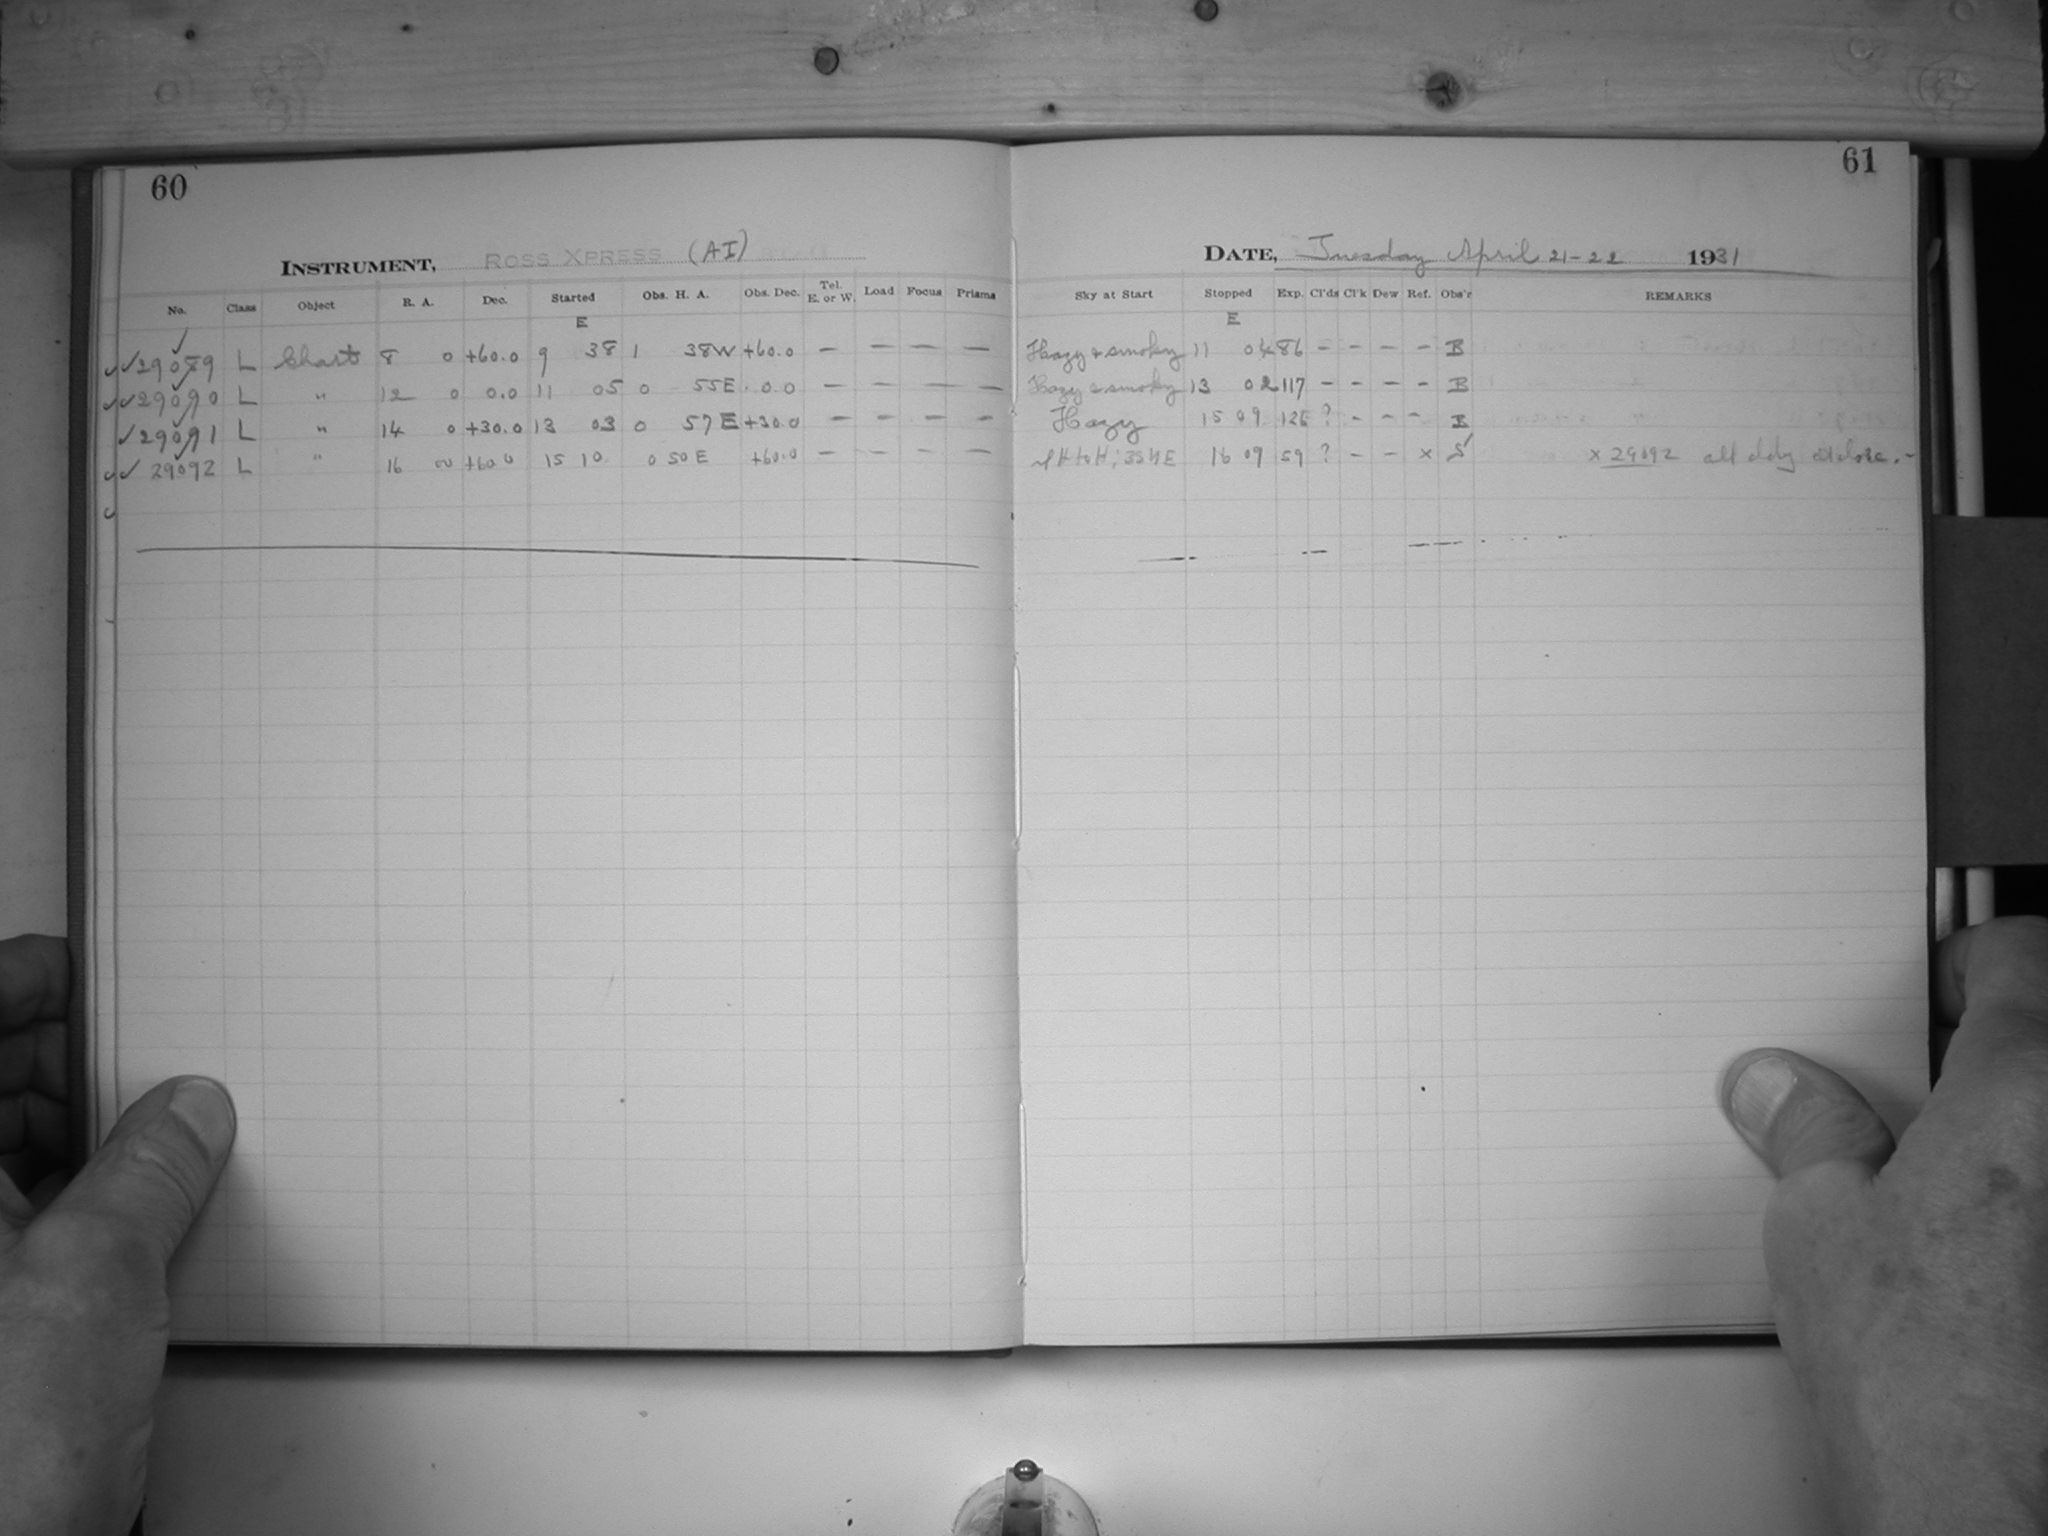 60
INSTRUMENT, ROSS XPRESS (AI)
No. Class Object R. A. Dec. Started Obs. H. A. Obs. Dec. Tel. E. or W. Load Focus Prisms
E
✓✓29089 L Chart 8 0 +60.0 9 38 1 38W +60.0 — — — —
✓✓29090 L " 12 0 0.0 11 05 0 55E 0.0 — — — —
✓29091 L " 14 0 +30.0 13 03 0 57E +30.0 — — — —
✓✓ 29092 L " 16 00 +60.0 15 10 0 50E +60.0 — — — —
61
DATE, Tuesday April 21-22 1931
Sky at Start Stopped Exp. Cl'ds Cl'k Dew Ref. Obs'r REMARKS
E
Hazy & smoky 11 04 86 - - - - B
Hazy & smoky 13 02 117 - - - - B
Hazy 15 09 126 ? - - - B
16 09 59 ? - - x S x 29092 all at close.-